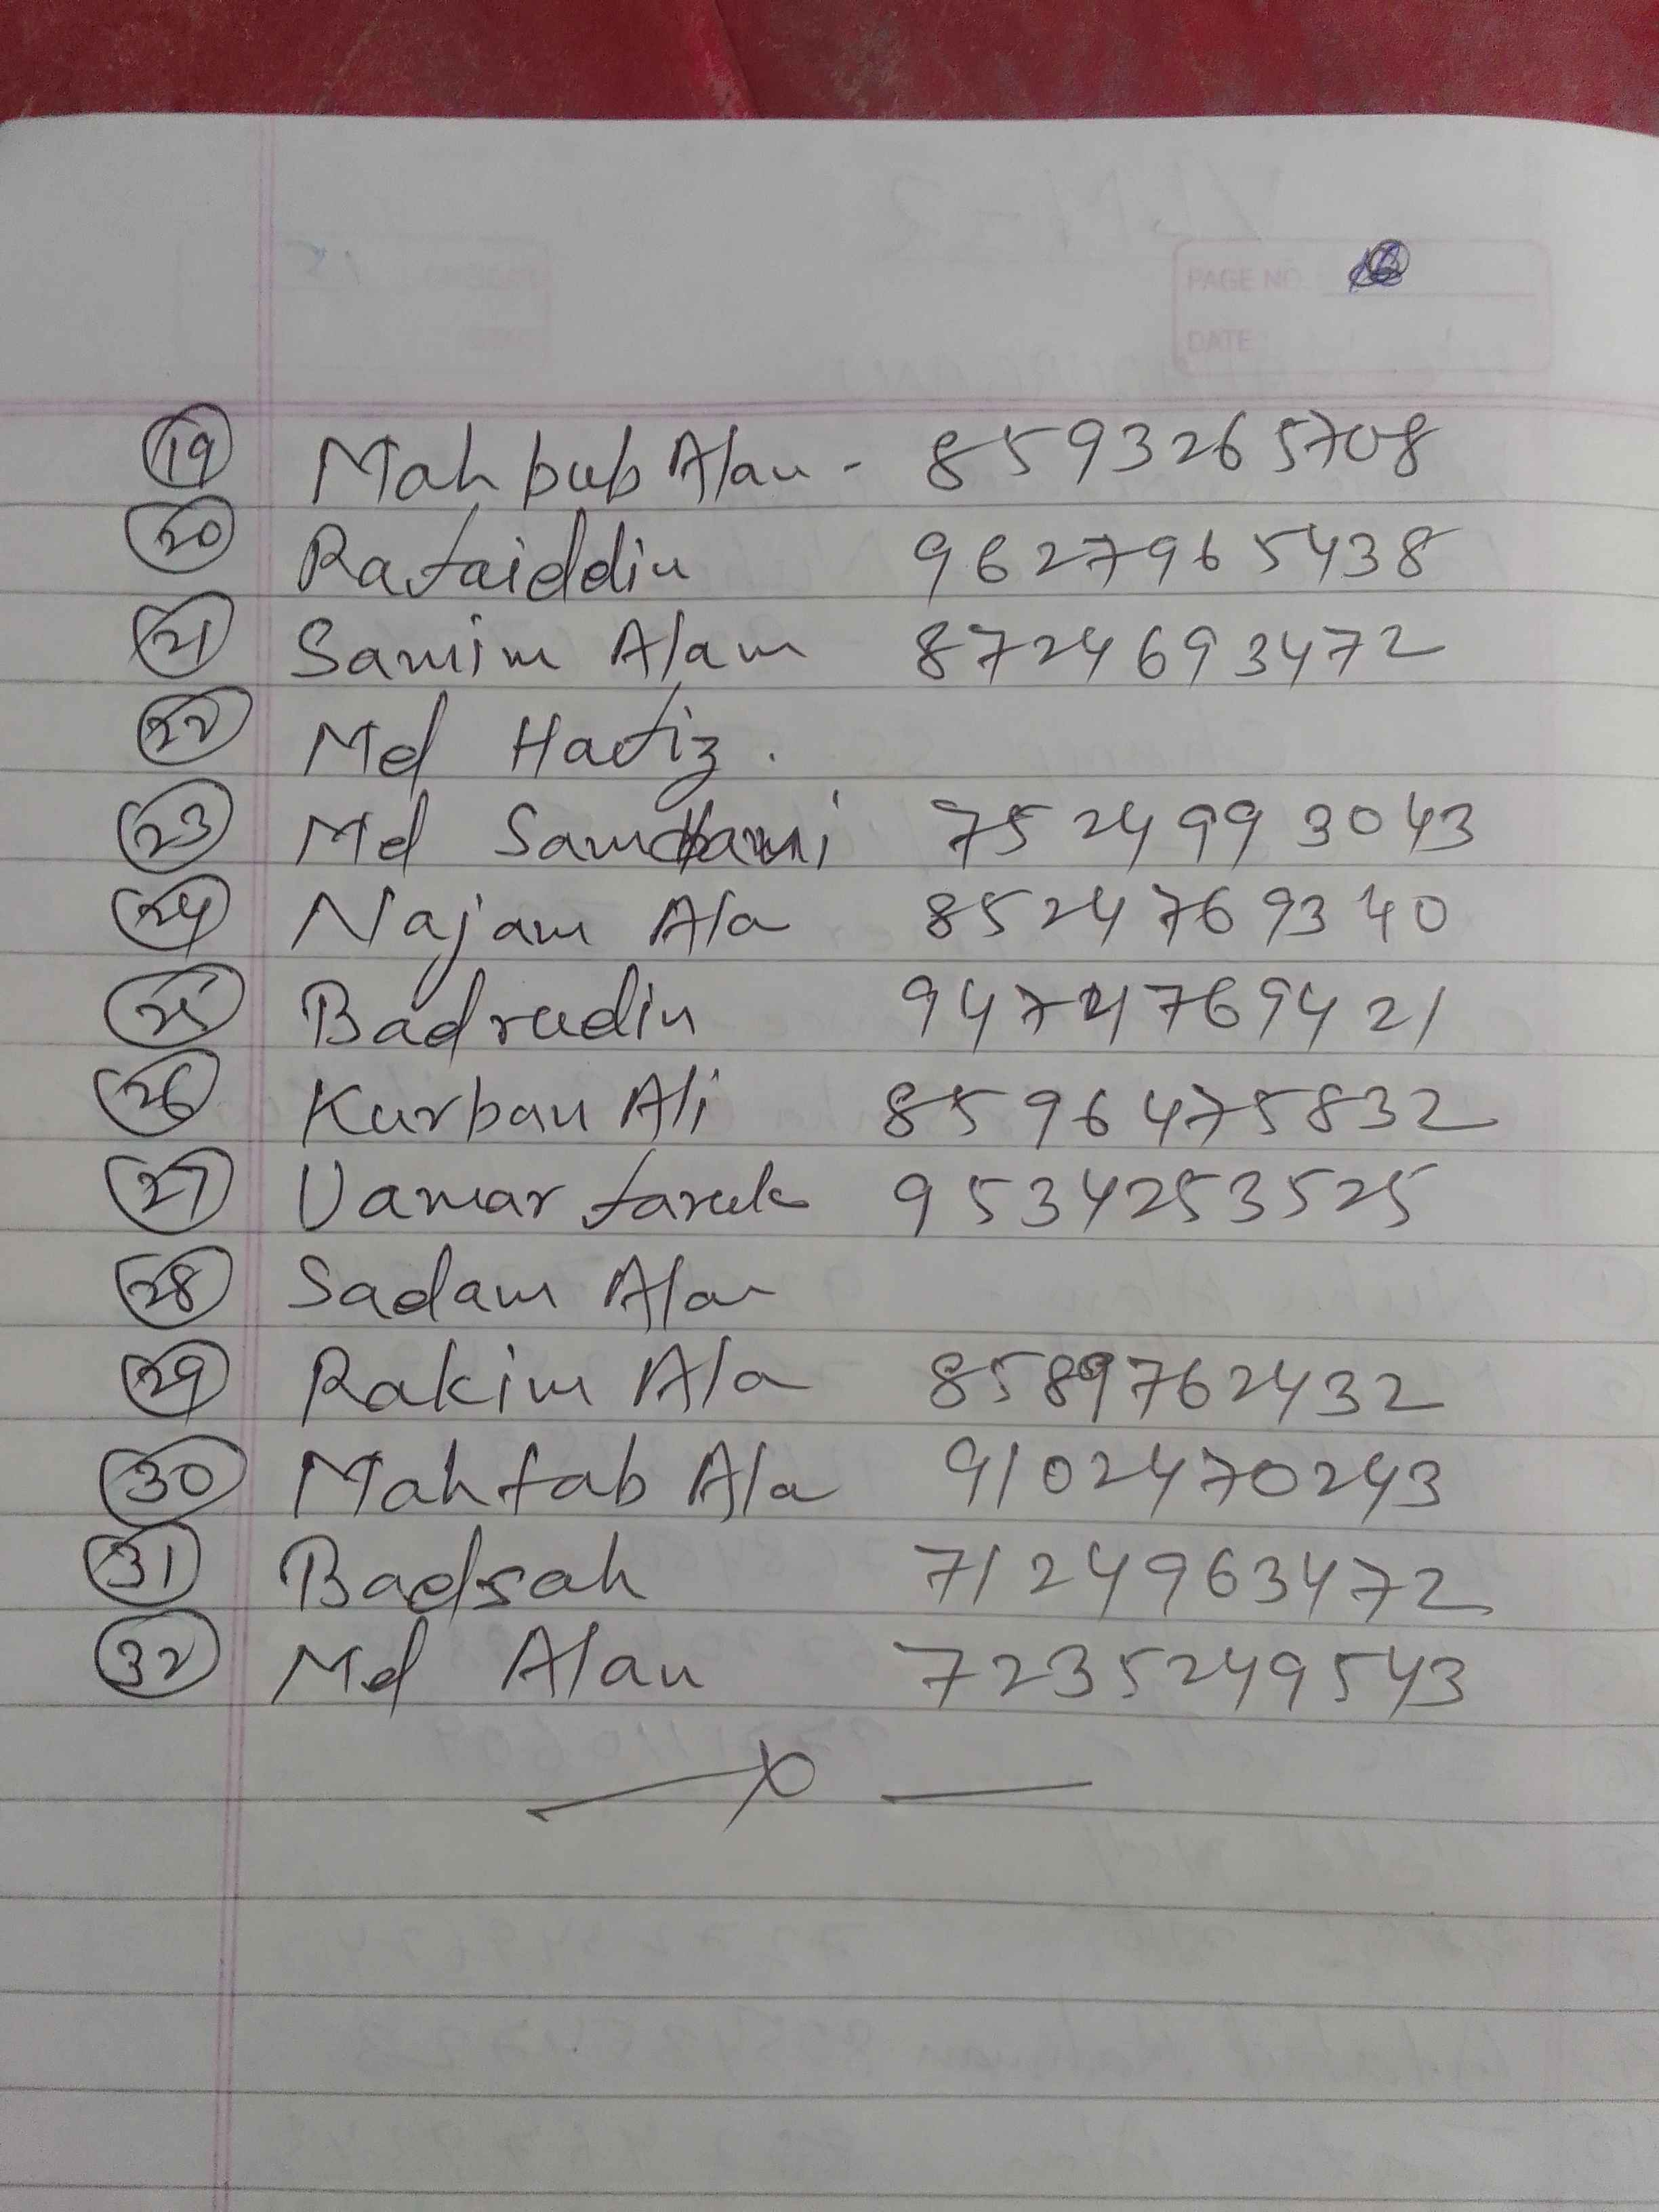 PAGE NO.
DATE
19 Mahbub Alam - 8593265708
20 Rafaiddin 9627965438
21 Samim Alam 8724693472
22 Md Hafiz.
23 Md 7524993043
24 Najam Ala 8524769340
25 Badrudin 9474769421
26 Kurban Ali 8596475832
27 Uamar faruk 9534253525
28 Sadam Alam
29 Rakim Ala 8589762432
30 Mahtab Ala 9102470243
31 Badsah 7124963472
32 Md Alam 7235249543
X